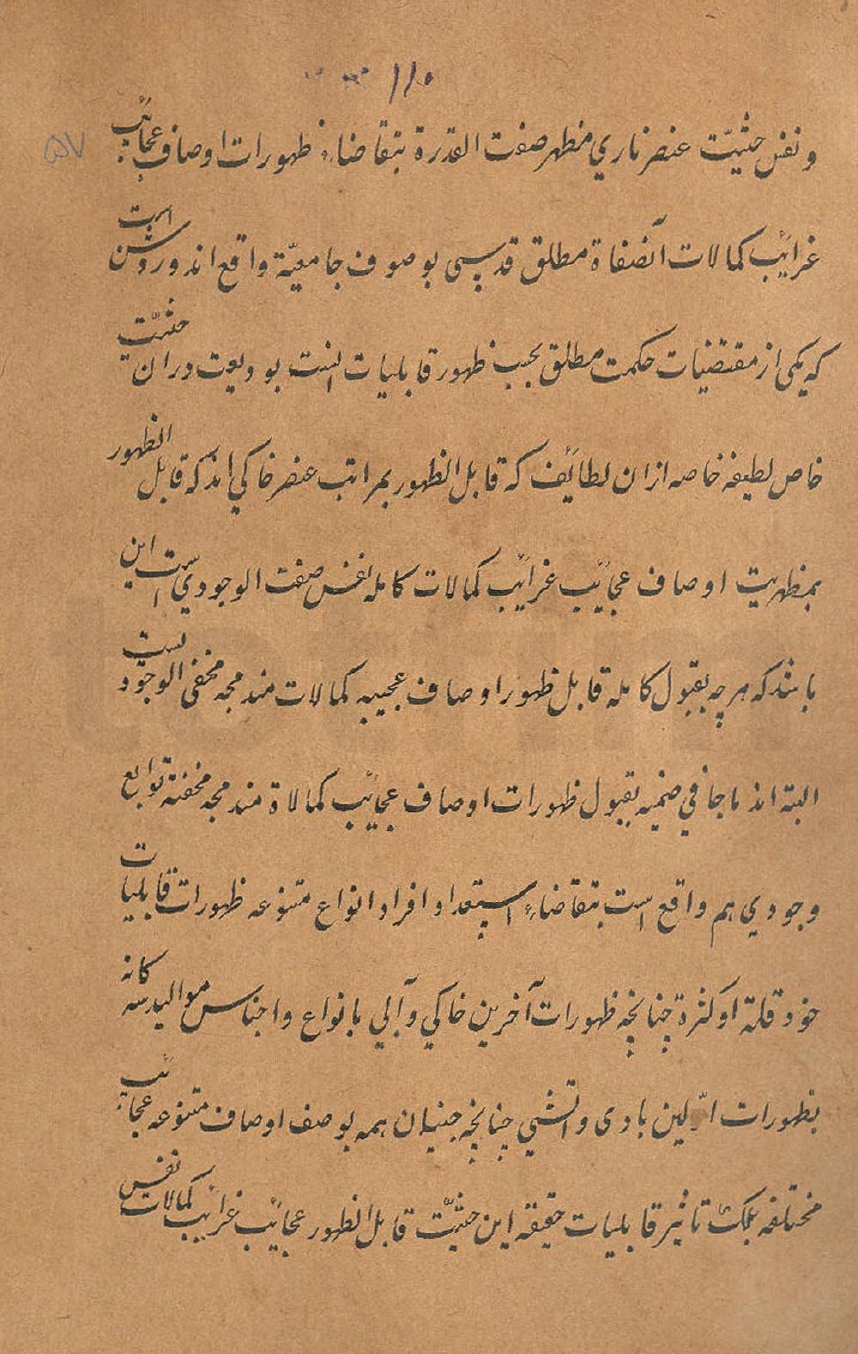 ۱۱۰
۵۷
ونفس حثیّت عنصر ناري مظهر صفت القدرة بتقاضاء ظهورات اوصاف عجائب
غرائب کمالات آنصفاة مطلق قدسی بوصوف جامعیّة واقع اند وروشن است
که یکی از مقتضیات حکمت مطلق بحسب ظهور قابلیات انست بودیعت دران حثیّت
خاص لطیفه خاصه ازان لطائف که قابل الظهور بمراتب عنصر خاکي اند که قابل الظهور
بمظهریت اوصاف عجائب غرائب کمالات کامله نفس صفت الوجودي است این
باشد که هرچه بقبول کامله قابل ظهور اوصاف عجیبه کمالات مندمجه مخفی الوجود یست
البته اند ماجا في ضمنیه بقبول ظهورات اوصاف عجائب کمالاة مندمجه مخفیة توابع
وجودي هم واقع است بتقاضاء استعداد افراد انواع متنوعه ظهورات قابلیات
خود قلة اوکثرة چنانچه ظهورات آخرین خاکي وآبي بانواع واجناس موالید سه کانه
بظهورات اوّلین بادی واتشي چنانچه جنیان همه بوصف اوصاف متنوعه عجائب
مختلفه بملک تاثیر قابلیات حقیقه این حثیّت قابل الظهور عجائب غرائب کمالات نفس